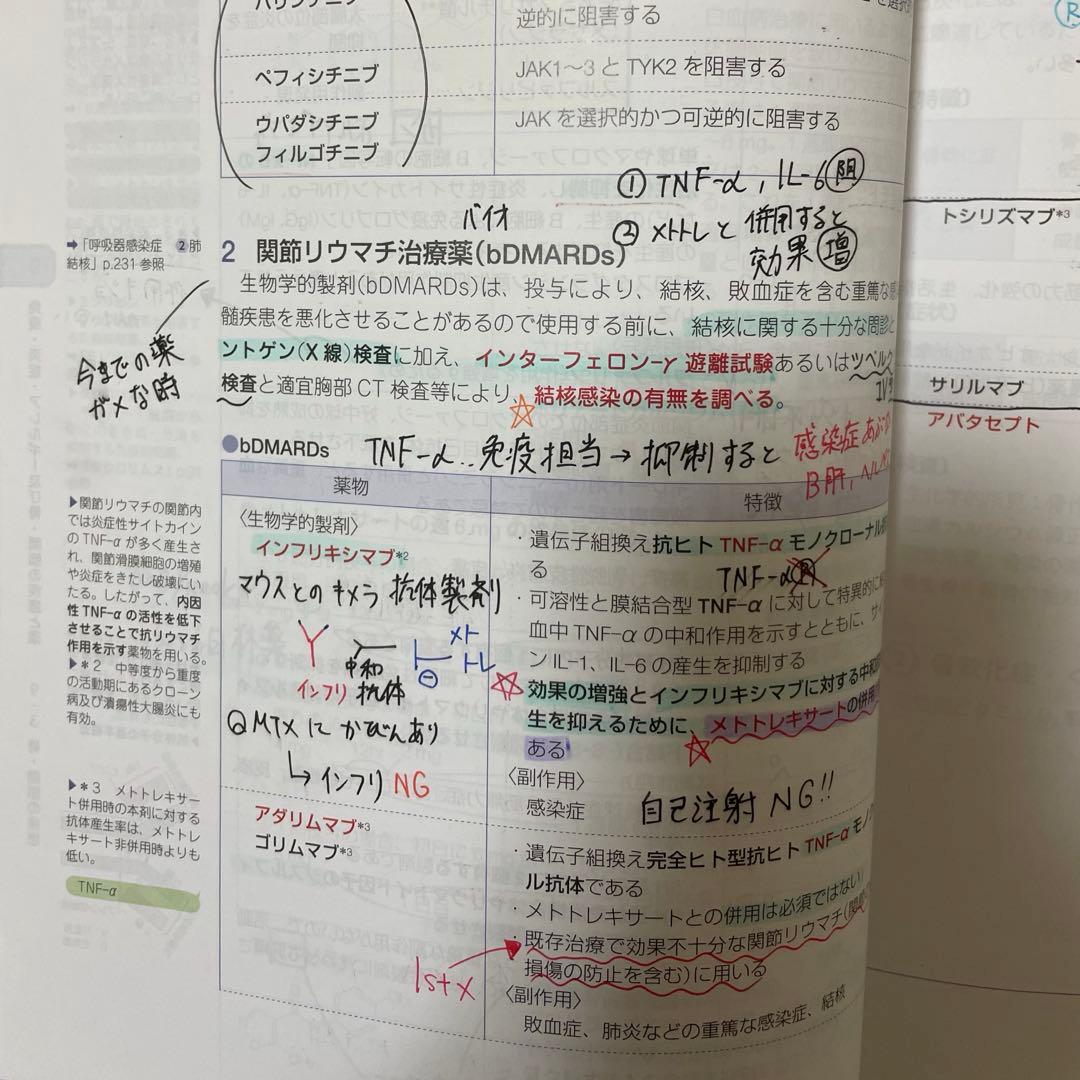 逆的に阻害する
ペフィシチニブ
JAK1〜3とTYK2を阻害する
ウパダシチニブ
フィルゴチニブ
JAKを選択的かつ可逆的に阻害する
① TNF-α, IL-6 阻
② メトトレと併用すると
効果 増
バイオ
➡「呼吸器感染症 ②肺
結核」p.231参照
2 関節リウマチ治療薬(bDMARDs)
生物学的製剤(bDMARDs)は、投与により、結核、敗血症を含む重篤な感
髄疾患を悪化させることがあるので使用する前に、結核に関する十分な問診と
ントゲン(X線)検査に加え、インターフェロン-γ 遊離試験あるいはツベルク
検査と適宜胸部CT検査等により、結核感染の有無を調べる。
今までの薬
ダメな時
●bDMARDs
TNF-α‥免疫担当→抑制すると
感染症
B肝
薬物
特徴
〈生物学的製剤〉
インフリキシマブ*2
マウスとのキメラ抗体製剤
インフリ
中和
抗体
メト
トレ
⊖
MTXにかびんあり
↳インフリ NG
・遺伝子組換え抗ヒトTNF-αモノクローナル
る
TNF-α
・可溶性と膜結合型TNF-αに対して特異的に
血中TNF-αの中和作用を示すとともに、サイ
ンIL-1、IL-6の産生を抑制する
効果の増強とインフリキシマブに対する中和
生を抑えるために、メトトレキサートの併用
ある
〈副作用〉
感染症
自己注射 NG!!
アダリムマブ*3
ゴリムマブ*3
・遺伝子組換え完全ヒト型抗ヒトTNF-αモノ
ル抗体である
・メトトレキサートとの併用は必須ではない
・既存治療で効果不十分な関節リウマチ(関節
損傷の防止を含む)に用いる
1st x
〈副作用〉
敗血症、肺炎などの重篤な感染症、結核
▶関節リウマチの関節内
では炎症性サイトカイン
のTNF-αが多く産生さ
れ、関節滑膜細胞の増殖
や炎症をきたし破壊にい
たる。したがって、内因
性TNF-αの活性を低下
させることで抗リウマチ
作用を示す薬物を用いる。
▶*2 中等度から重度
の活動期にあるクローン
病及び潰瘍性大腸炎にも
有効。
▶*3 メトトレキサー
ト併用時の本剤に対する
抗体産生率は、メトトレ
キサート非併用時よりも
低い。
TNF-α
トシリズマブ*3
サリルマブ
アバタセプト